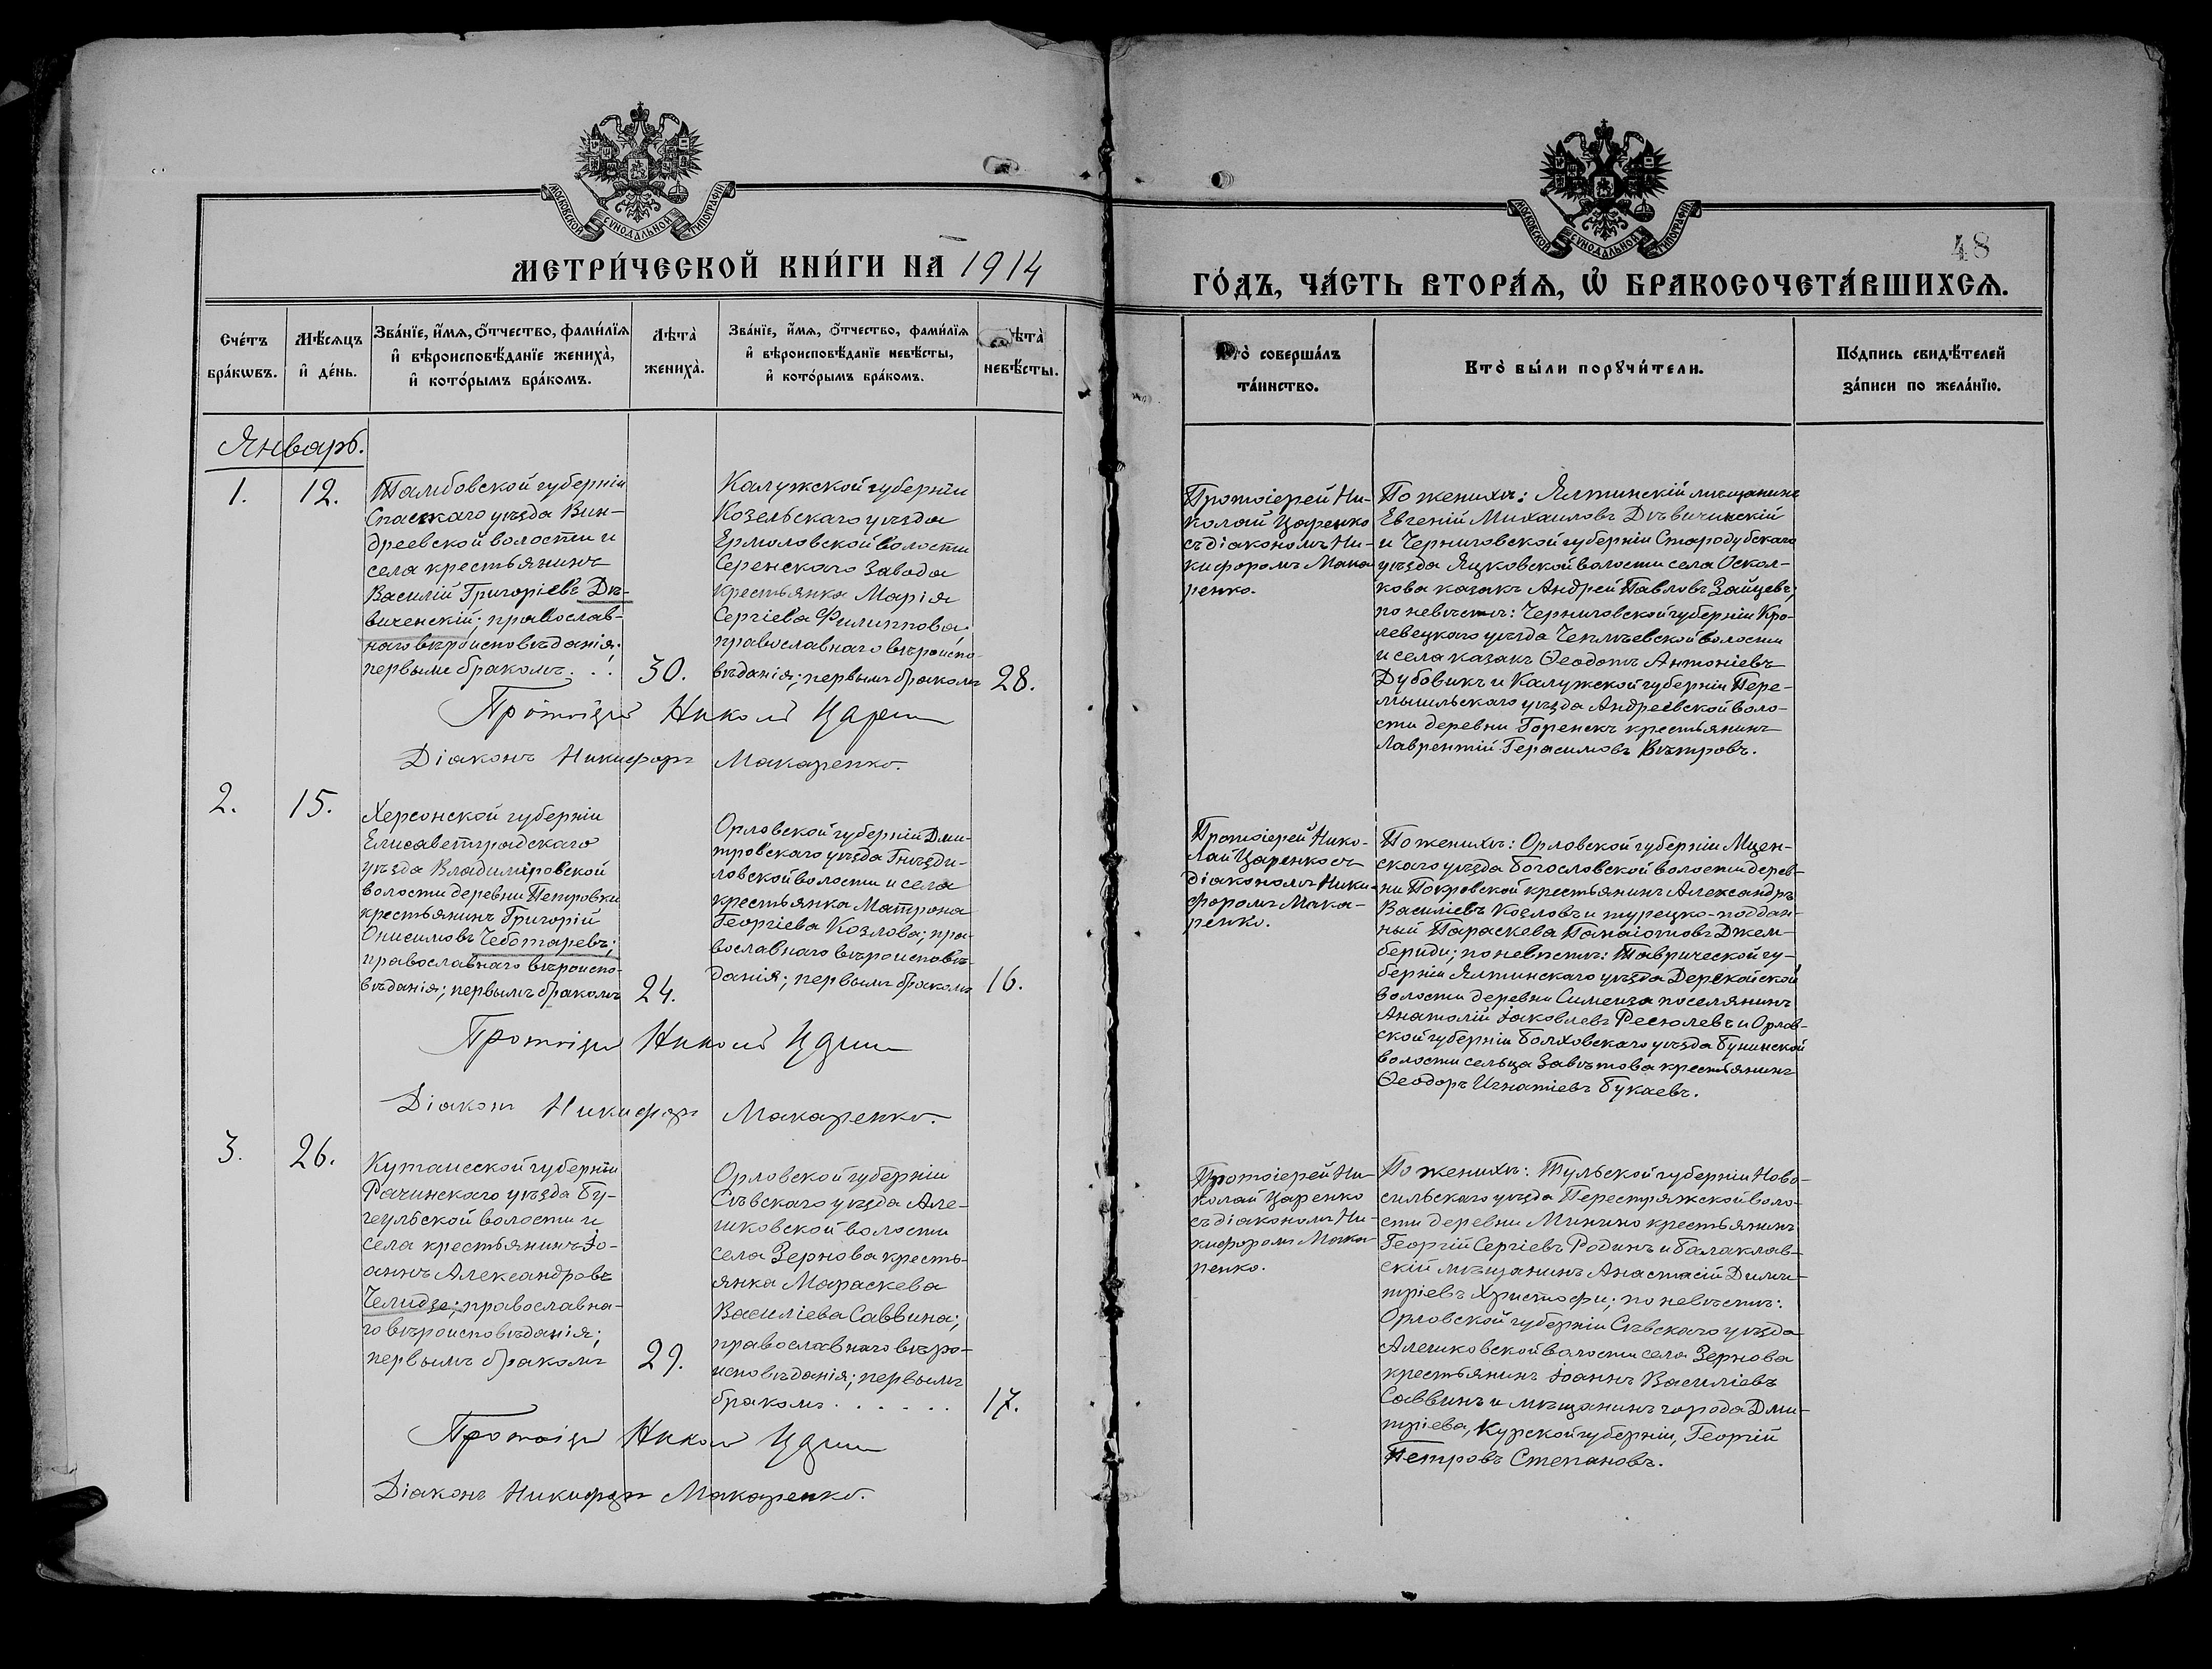 МОСКОВСКОЙ СУНОДАЛЬНОЙ ТИПОГРАФІИ
МЕТРИ́ЧЕСКОЙ КНИ́ГИ НА 1914
Сче́тъ бра́кѡвъ.
Мѣ́сяцъ и҆ де́нь.
Зва́нїе, и҆́мѧ, ѻ҆́тчество, фами́лїѧ
и҆ вѣроисповѣ́данїе жениха̀,
и҆ кото́рымъ бра́комъ.
Лѣта̀ жениха̀.
Зва́нїе, и҆́мѧ, ѻ҆́тчество, фами́лїѧ
и҆ вѣроисповѣ́данїе невѣ́сты,
и҆ кото́рымъ бра́комъ.
ѣта̀ невѣ́сты.
Январь.
1.
12.
Тамбовской губерніи
Спасскаго уѣзда Вин-
дреевской волости и
села крестьянинъ
Василій Григоріевъ Дѣ-
виченскій; православ-
наго вѣроисповѣданія;
первымъ бракомъ. . .
30.
Калужской губерніи
Козельскаго уѣзда
Ермоловской волости
Серенскаго завода
крестьянка Марія
Сергіева Филиппова
православнаго вѣроиспо-
вѣданія; первымъ бракомъ
28.
Протоіерей Николай Царенко
Діаконъ Никифоръ Макаренко.
2.
15.
Херсонской губерніи
Елисаветградскаго
уѣзда Владиміровской
волости деревни Петровки
крестьянинъ Григорій
Онисимовъ Чеботаревъ;
православнаго вѣроиспо-
вѣданія; первымъ бракомъ
24.
Орловской губерніи Дми-
тровскаго уѣзда Гнѣзди-
ловской волости и села
крестьянка Матрона
Георгіева Козлова; пра-
вославнаго вѣроисповѣ-
данія; первымъ бракомъ
16.
Протоіерей Николай Царенко
Діаконъ Никифоръ Макаренко.
3.
26.
Кутаисской губерніи
Рачинскаго уѣзда Бу-
геульской волости и
села крестьянинъ Іо-
аннъ Александровъ
Челидзе; православна-
го вѣроисповѣданія;
первымъ бракомъ
29.
Орловской губерніи
Сѣвскаго уѣзда Але-
шковской волости
села Зернова кресть-
янка Параскева
Василіева Саввина;
православнаго вѣро-
исповѣданія; первымъ
бракомъ. . . . . .
17.
Протоіерей Николай Царенко
Діаконъ Никифоръ Макаренко.
МОСКОВСКОЙ СУНОДАЛЬНОЙ ТИПОГРАФІИ
48
ГО́ДЪ, ЧА́СТЬ ВТОРА́Ѧ, Ѡ҆ БРАКОСОЧЕТА́ВШИХСѦ.
то̀ соверша́лъ
та́инство.
Кто̀ бы́ли порꙋчи́тели.
По́дпись свидѣ́телей
за́писи по жела́нїю.
Протоіерей Ни-
колай Царенко
съ діакономъ Ни-
кифоромъ Мака
ренко.
По женихѣ: Ялтинскій мѣщанинъ
Евгеній Михаиловъ Дѣвичинскій
и Черниговской губерніи Стародубскаго
уѣзда Яцковской волости села Оскол-
кова казакъ Андрей Павловъ Зайцевъ;
по невѣстѣ: Черниговской губерніи Кро-
левецкаго уѣзда Чеплѣевской волости
и села казакъ Ѳеодотъ Антоніевъ
Дубовикъ и Калужской губерніи Пере-
мышльскаго уѣзда Андреевской воло-
сти деревни Горенскъ крестьянинъ
Лаврентій Герасимовъ Вѣтровъ.
Протоіерей Нико-
лай Царенко съ
діакономъ Ники-
форомъ Мака-
ренко.
По женихѣ: Орловской губерніи Мцен-
скаго уѣзда Богословской волости дерев-
ни Покровской крестьянинъ Александръ
Василіевъ Козловъ и турецко-поддан-
ный Параскева Панаіотовъ Джем-
бериди; по невѣстѣ: Таврической гу-
берніи Ялтинскаго уѣзда Дерекойской
волости деревни Симеиза поселянинъ
Анатолій Іаковлевъ Ресюлевъ и Орлов-
ской губерніи Болховскаго уѣзда Бунинской
волости сельца Завѣтова крестьянинъ
Ѳеодоръ Игнатіевъ Букаевъ.
Протоіерей Ни-
колай Царенко
съ діакономъ Ни-
кифоромъ Мака-
ренко.
По женихѣ: Тульской губерніи Ново-
сильскаго уѣзда Перестряжской воло-
сти деревни Минино крестьянинъ
Георгій Сергіевъ Родинъ и балаклав-
скій мѣщанинъ Анастасій Дими-
тріевъ Христофи; по невѣстѣ:
Орловской губерніи Сѣвскаго уѣзда
Алешковской волости села Зернова
крестьянинъ Іоаннъ Василіевъ
Саввинъ и мѣщанинъ города Дми-
тріева, Курской губерніи, Георгій
Петровъ Степановъ.